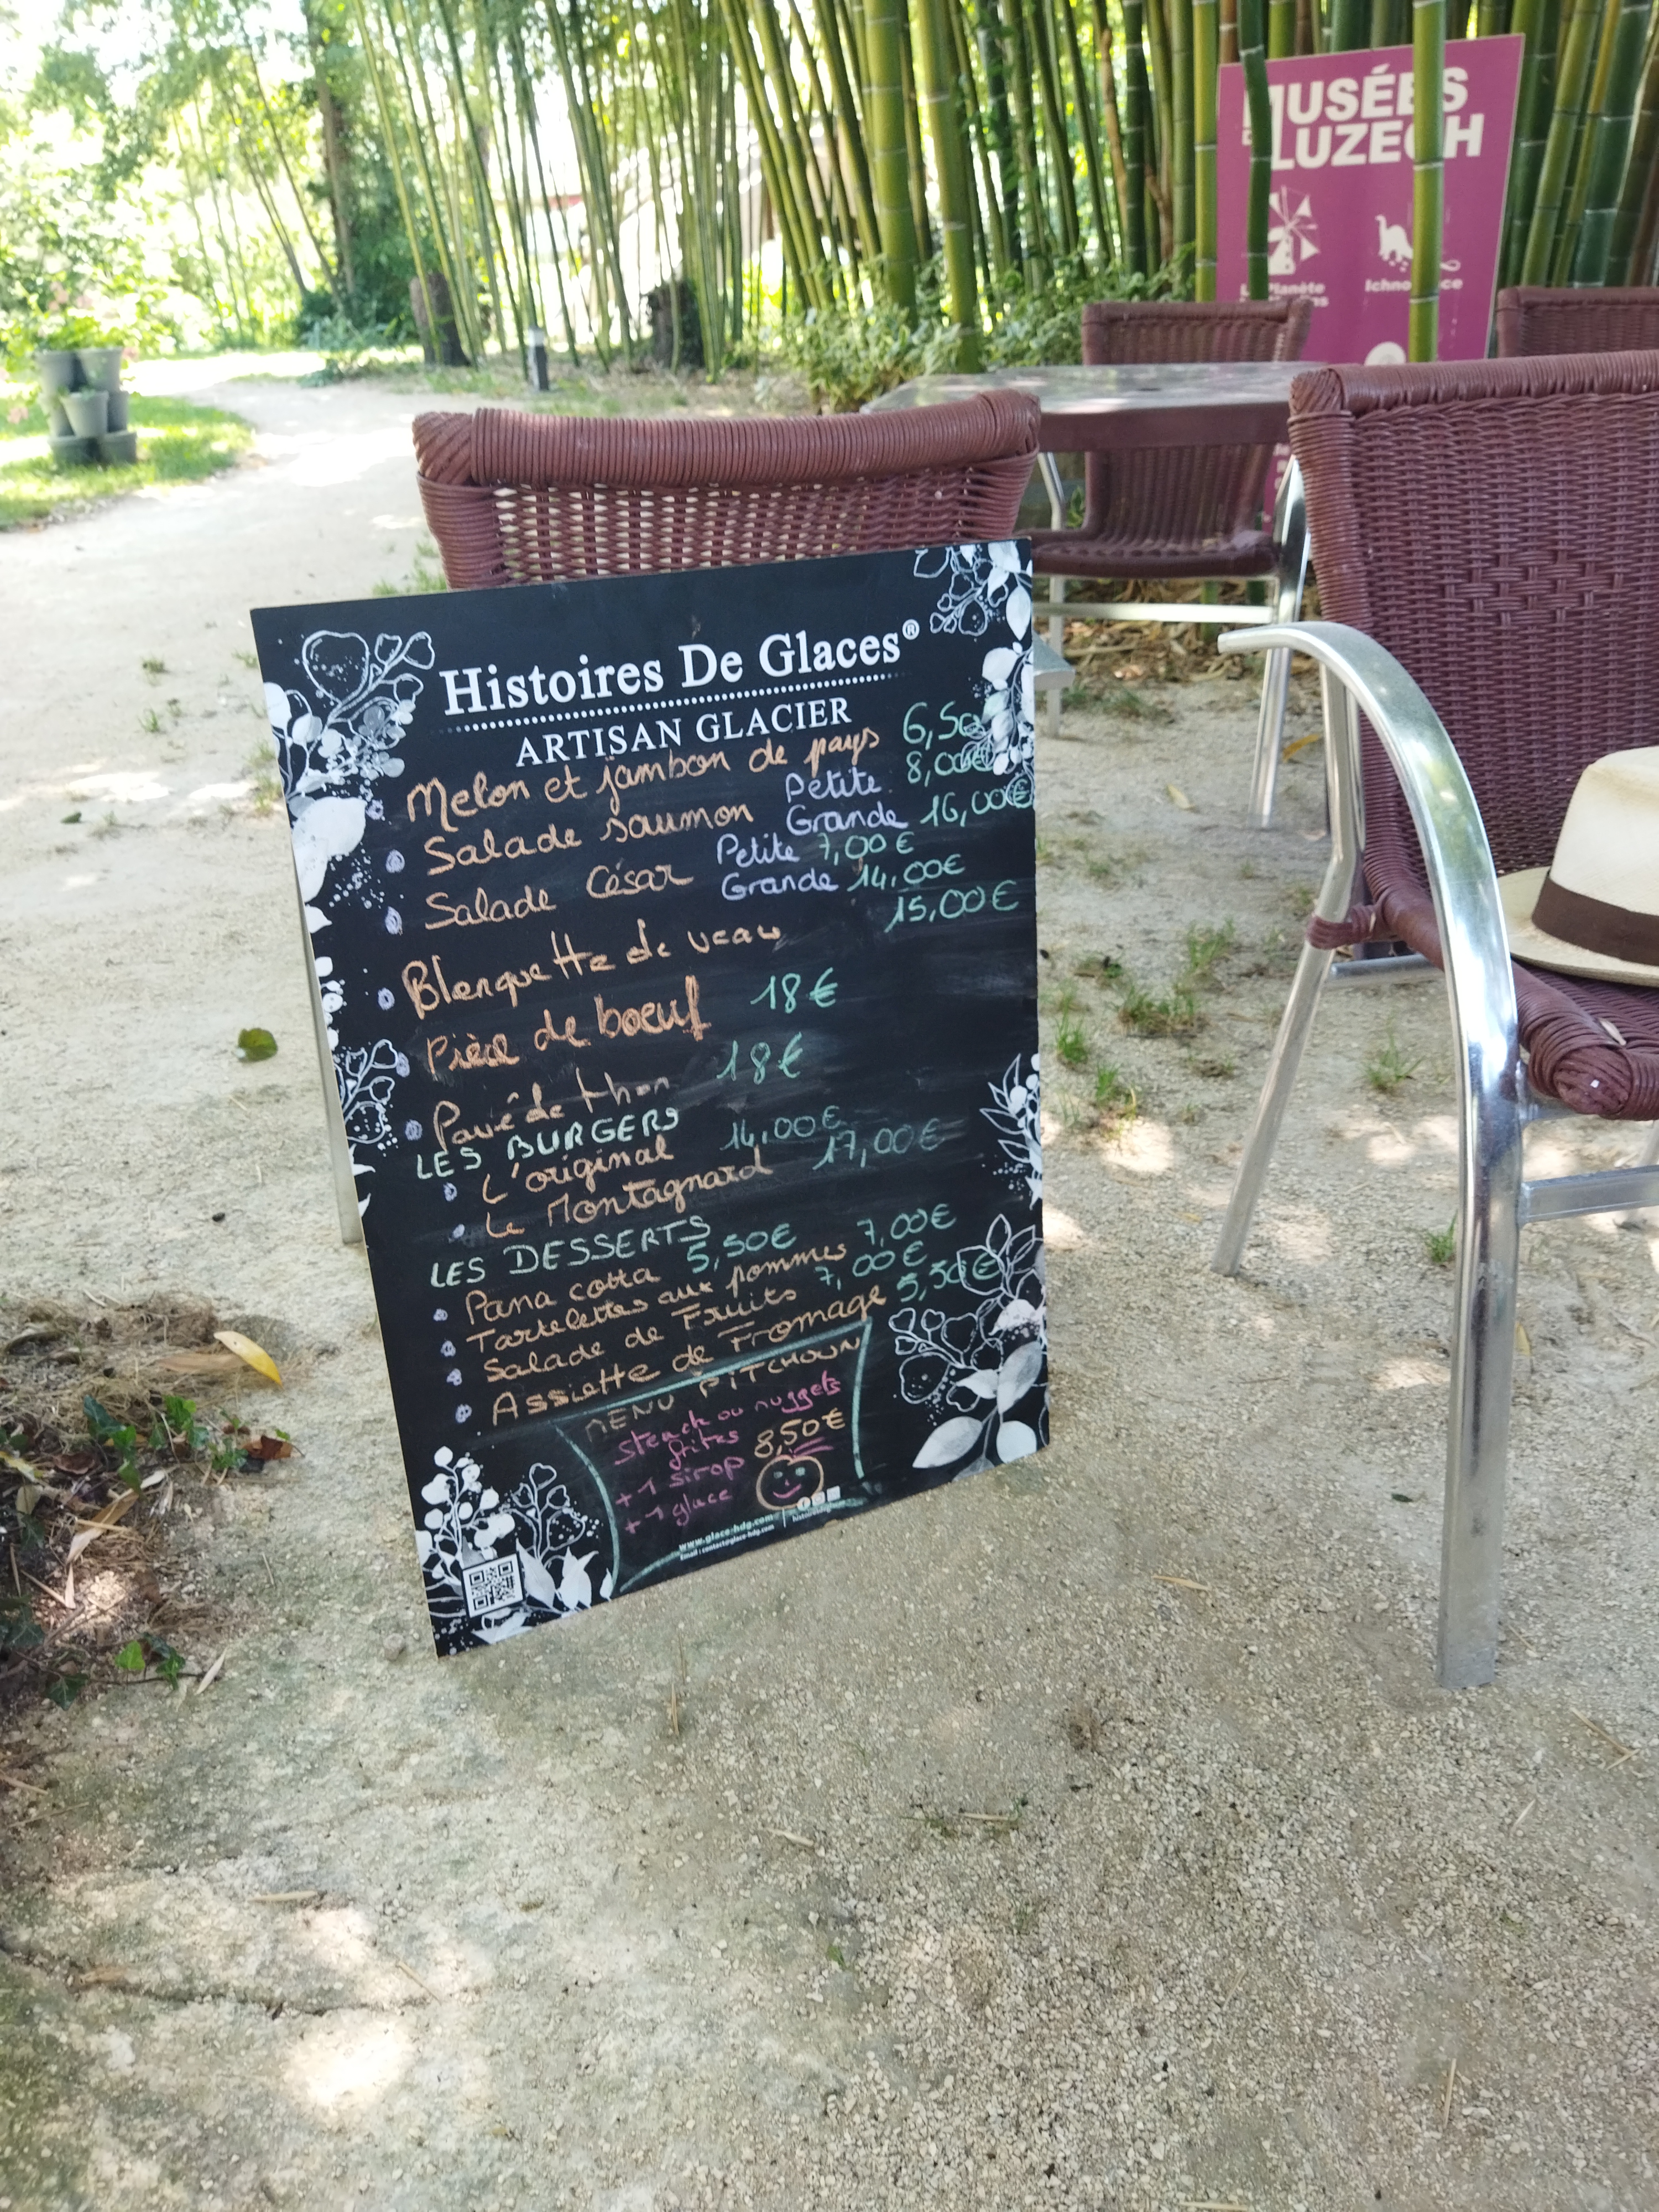 MUSÉES
LUZECH
Histoires De Glaces®
ARTISAN GLACIER
Melon et jambon de pays 6,50
Salade saumon Petite 8,00€
Grande 16,00€
Salade César Petite 7,00€
Grande 14,00€
Blenquette de veau 15,00€
Pièce de boeuf 18€
Pavé de thon 18€
LES BURGERS
L'original 14,00€
Le Montagnard 17,00€
LES DESSERTS
Pana cotta 5,50€
Tartelettes aux pommes 7,00€
Salade de Fruits 7,00€
Assiette de Fromage 5,50€
MENU PITCHOUN
steack ou nuggets
frites 8,50€
+ 1 sirop
+ 1 glace
www.glace-hdg.com
Email : contact@glace-hdg.com